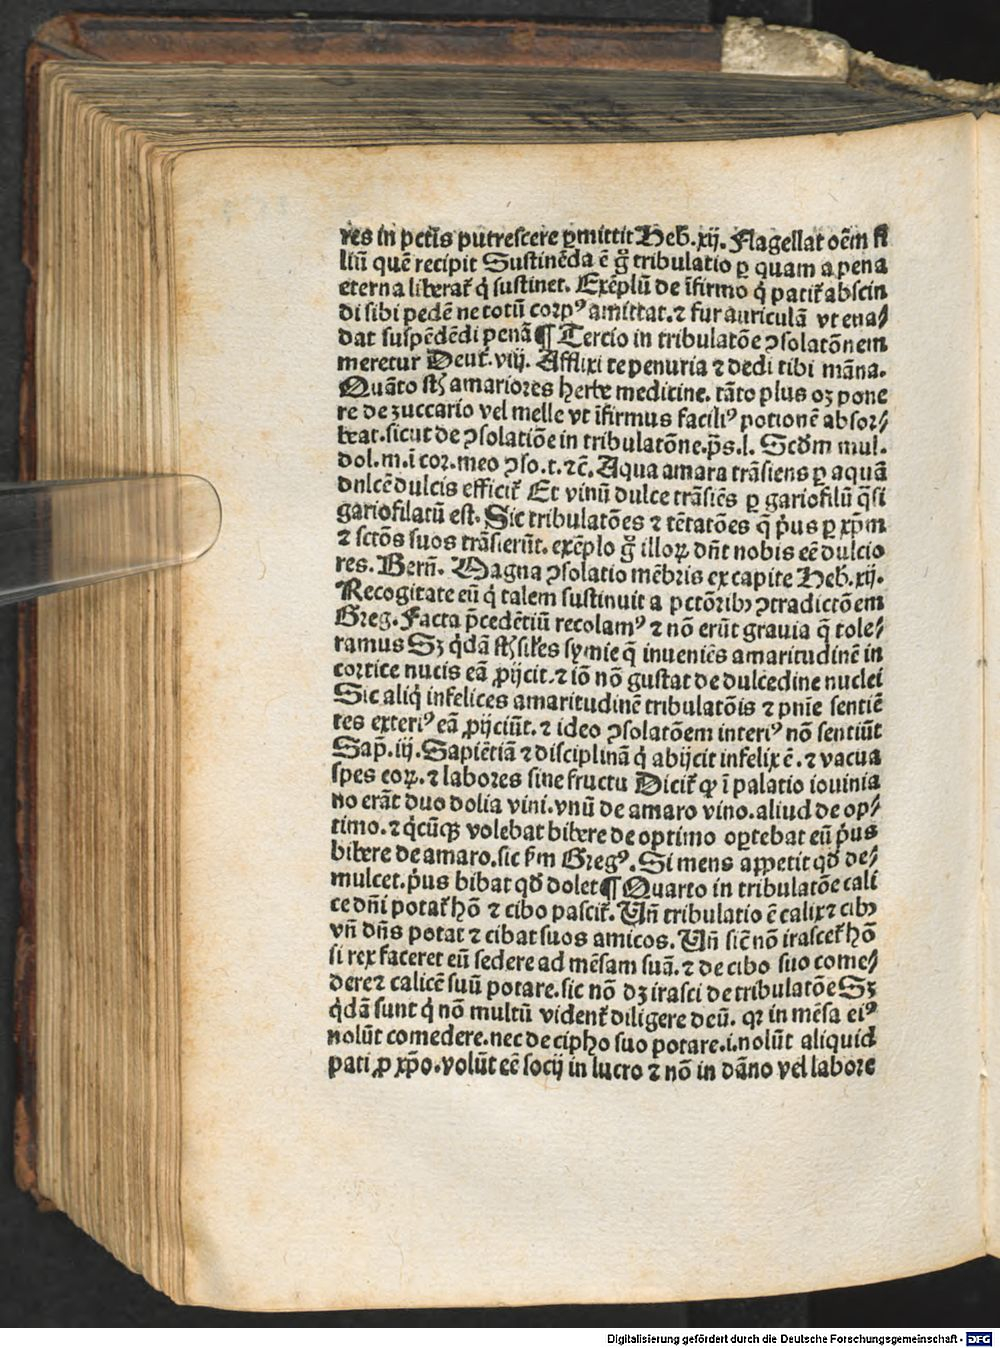 res in pctīs putrescere ꝑmittit Heb̄. xij. Flagellat oēm fi
liū quē recipit Sustinēda ē g̊ tribulatio ꝑ quam a pena
eterna liberat᷑ q̇ sustinet. Exēplū de īfirmo q̇ patit᷑ abscin
di sibi pedē ne totū corpꝰ amittat. ⁊ fur auriculā vt eua⸗
dat suspēdēdi penā ¶ Tercio in tribulatōe ꝯsolatōnem
meretur Deut᷑. viij. Afflixi te penuria ⁊ dedi tibi māna.
Quāto st̄ amariores herbe medicine. tāto plus oꝫ pone
re de zuccario vel melle vt īfirmus faciliꝰ potionē absor⸗
beat. sicut de ꝯsolatiōe in tribulatōne. p̄s. l. Scd̄m mul.
dol. m. ī cor. meo ꝯso. t. ⁊c̄. Aqua amara trāsiens ꝑ aquā
dulcē dulcis efficit᷑ Et vinū dulce trāsiēs ꝑ gariofilū q̄si
gariofilatū est. Sic tribulatōes ⁊ tētatōes q̄ p̓us ꝑ xp̄m
⁊ sctōs suos trāsierūt. exēplo g̊ illoꝝ dn̄t nobis eē dulcio
res. Bern̄. Magna ꝯsolatio mēbris ex capite Heb̄. xij.
Recogitate eū q̇ talem sustinuit a pctōribꝫ ꝯtradictōem
Greg. Facta p̄cedētiū recolamꝰ ⁊ nō erūt grauia q̄ tole⸗
ramus Sꝫ q̇dā st̄ sil̓es symie q̄ inueniēs amaritudinē in
cortice nucis eā ꝓijcit. ⁊ iō nō gustat de dulcedine nuclei
Sic aliq̇ infelices amaritudinē tribulatōis ⁊ pn̄ie sentiē
tes exteriꝰ eā ꝓijciūt. ⁊ ideo ꝯsolatōem interiꝰ nō sentiūt
Sap̄. iij. Sapiētiā ⁊ disciplinā q̇ abijcit infelix ē. ⁊ vacua
spes eoꝝ. ⁊ labores sine fructu Dicit᷑ ꝙ ī palatio iouinia
no erāt duo dolia vini. vnū de amaro vino. aliud de op⸗
timo. ⁊ q̇cūqꝫ volebat bibere de optimo oꝑtebat eū p̓us
bibere de amaro. sic ẜm Gregꝰ. Si mens aꝑpetit qd̄ de⸗
mulcet. p̓us bibat qd̄ dolet ¶ Quarto in tribulatōe cali
ce dn̄i potat᷑ hō ⁊ cibo pascit᷑. Vn̄ tribulatio ē calix ⁊ cibꝫ
vn̄ dn̄s potat ⁊ cibat suos amicos. Vn̄ sic̄ nō irascet᷑ hō
si rex faceret eū sedere ad mēsam suā. ⁊ de cibo suo come⸗
dere ⁊ calicē suū potare. sic nō dꝫ irasci de tribulatōe Sꝫ
q̇dā sunt q̇ nō multū vident᷑ diligere deū. qꝛ in mēsa eiꝰ
nolūt comedere. nec de cipho suo potare. i. nolūt aliquid
pati ꝓ xp̄o. volūt eē socij in lucro ⁊ nō in dāno vel labore
Digitalisierung gefördert durch die Deutsche Forschungsgemeinschaft - DFG